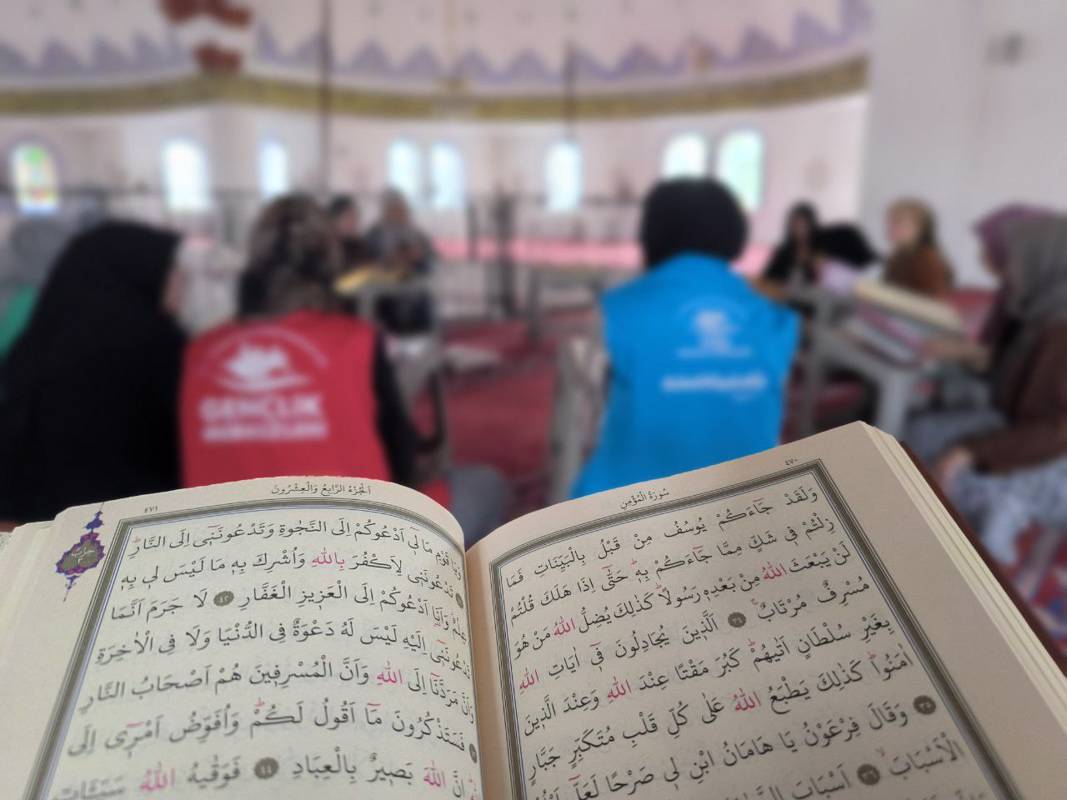 سُورَةُ الْمُؤْمِنِ
٤٧٠
وَلَقَدْ جَٓاءَكُمْ يُوسُفُ مِنْ قَبْلُ بِالْبَيِّنَاتِ فَمَا
زِلْتُمْ فٖى شَكٍّ مِمَّا جَٓاءَكُمْ بِهٖ حَتّٰٓى اِذَا هَلَكَ قُلْتُمْ
لَنْ يَبْعَثَ اللّٰهُ مِنْ بَعْدِهٖ رَسُولًا كَذٰلِكَ يُضِلُّ اللّٰهُ مَنْ هُوَ
مُسْرِفٌ مُرْتَابٌ ٣٤ اَلَّذٖينَ يُجَادِلُونَ فٖٓى اٰيَاتِ اللّٰهِ
بِغَيْرِ سُلْطَانٍ اَتٰيهُمْ كَبُرَ مَقْتًا عِنْدَ اللّٰهِ وَعِنْدَ الَّذٖينَ
اٰمَنُوا كَذٰلِكَ يَطْبَعُ اللّٰهُ عَلٰى كُلِّ قَلْبِ مُتَكَبِّرٍ جَبَّارٍ
٣٥ وَقَالَ فِرْعَوْنُ يَا هَامَانُ ابْنِ لٖى صَرْحًا لَعَلّٖٓى
الْاَسْبَابَ ٣٦ اَسْبَابَ
اَلْجُزْءُ الرَّابِعُ وَالْعِشْرُونَ
٤٧١
وَيَا قَوْمِ مَا لٖٓى اَدْعُوكُمْ اِلَى النَّجٰوةِ وَتَدْعُونَنٖٓى اِلَى النَّارِ
٤١ تَدْعُونَنٖى لِاَكْفُرَ بِاللّٰهِ وَاُشْرِكَ بِهٖ مَا لَيْسَ لٖى بِهٖ
عِلْمٌ وَاَنَا۬ اَدْعُوكُمْ اِلَى الْعَزٖيزِ الْغَفَّارِ ٤٢ لَا جَرَمَ اَنَّمَا
تَدْعُونَنٖٓى اِلَيْهِ لَيْسَ لَهُ دَعْوَةٌ فِى الدُّنْيَا وَلَا فِى الْاٰخِرَةِ
وَاَنَّ مَرَدَّنَٓا اِلَى اللّٰهِ وَاَنَّ الْمُسْرِفٖينَ هُمْ اَصْحَابُ النَّارِ
٤٣ فَسَتَذْكُرُونَ مَٓا اَقُولُ لَكُمْ وَاُفَوِّضُ اَمْرٖٓى اِلَى
اِنَّ اللّٰهَ بَصٖيرٌ بِالْعِبَادِ ٤٤ فَوَقٰيهُ اللّٰهُ سَيِّـَٔاتِ
GENÇLİK
MERKEZLERİ